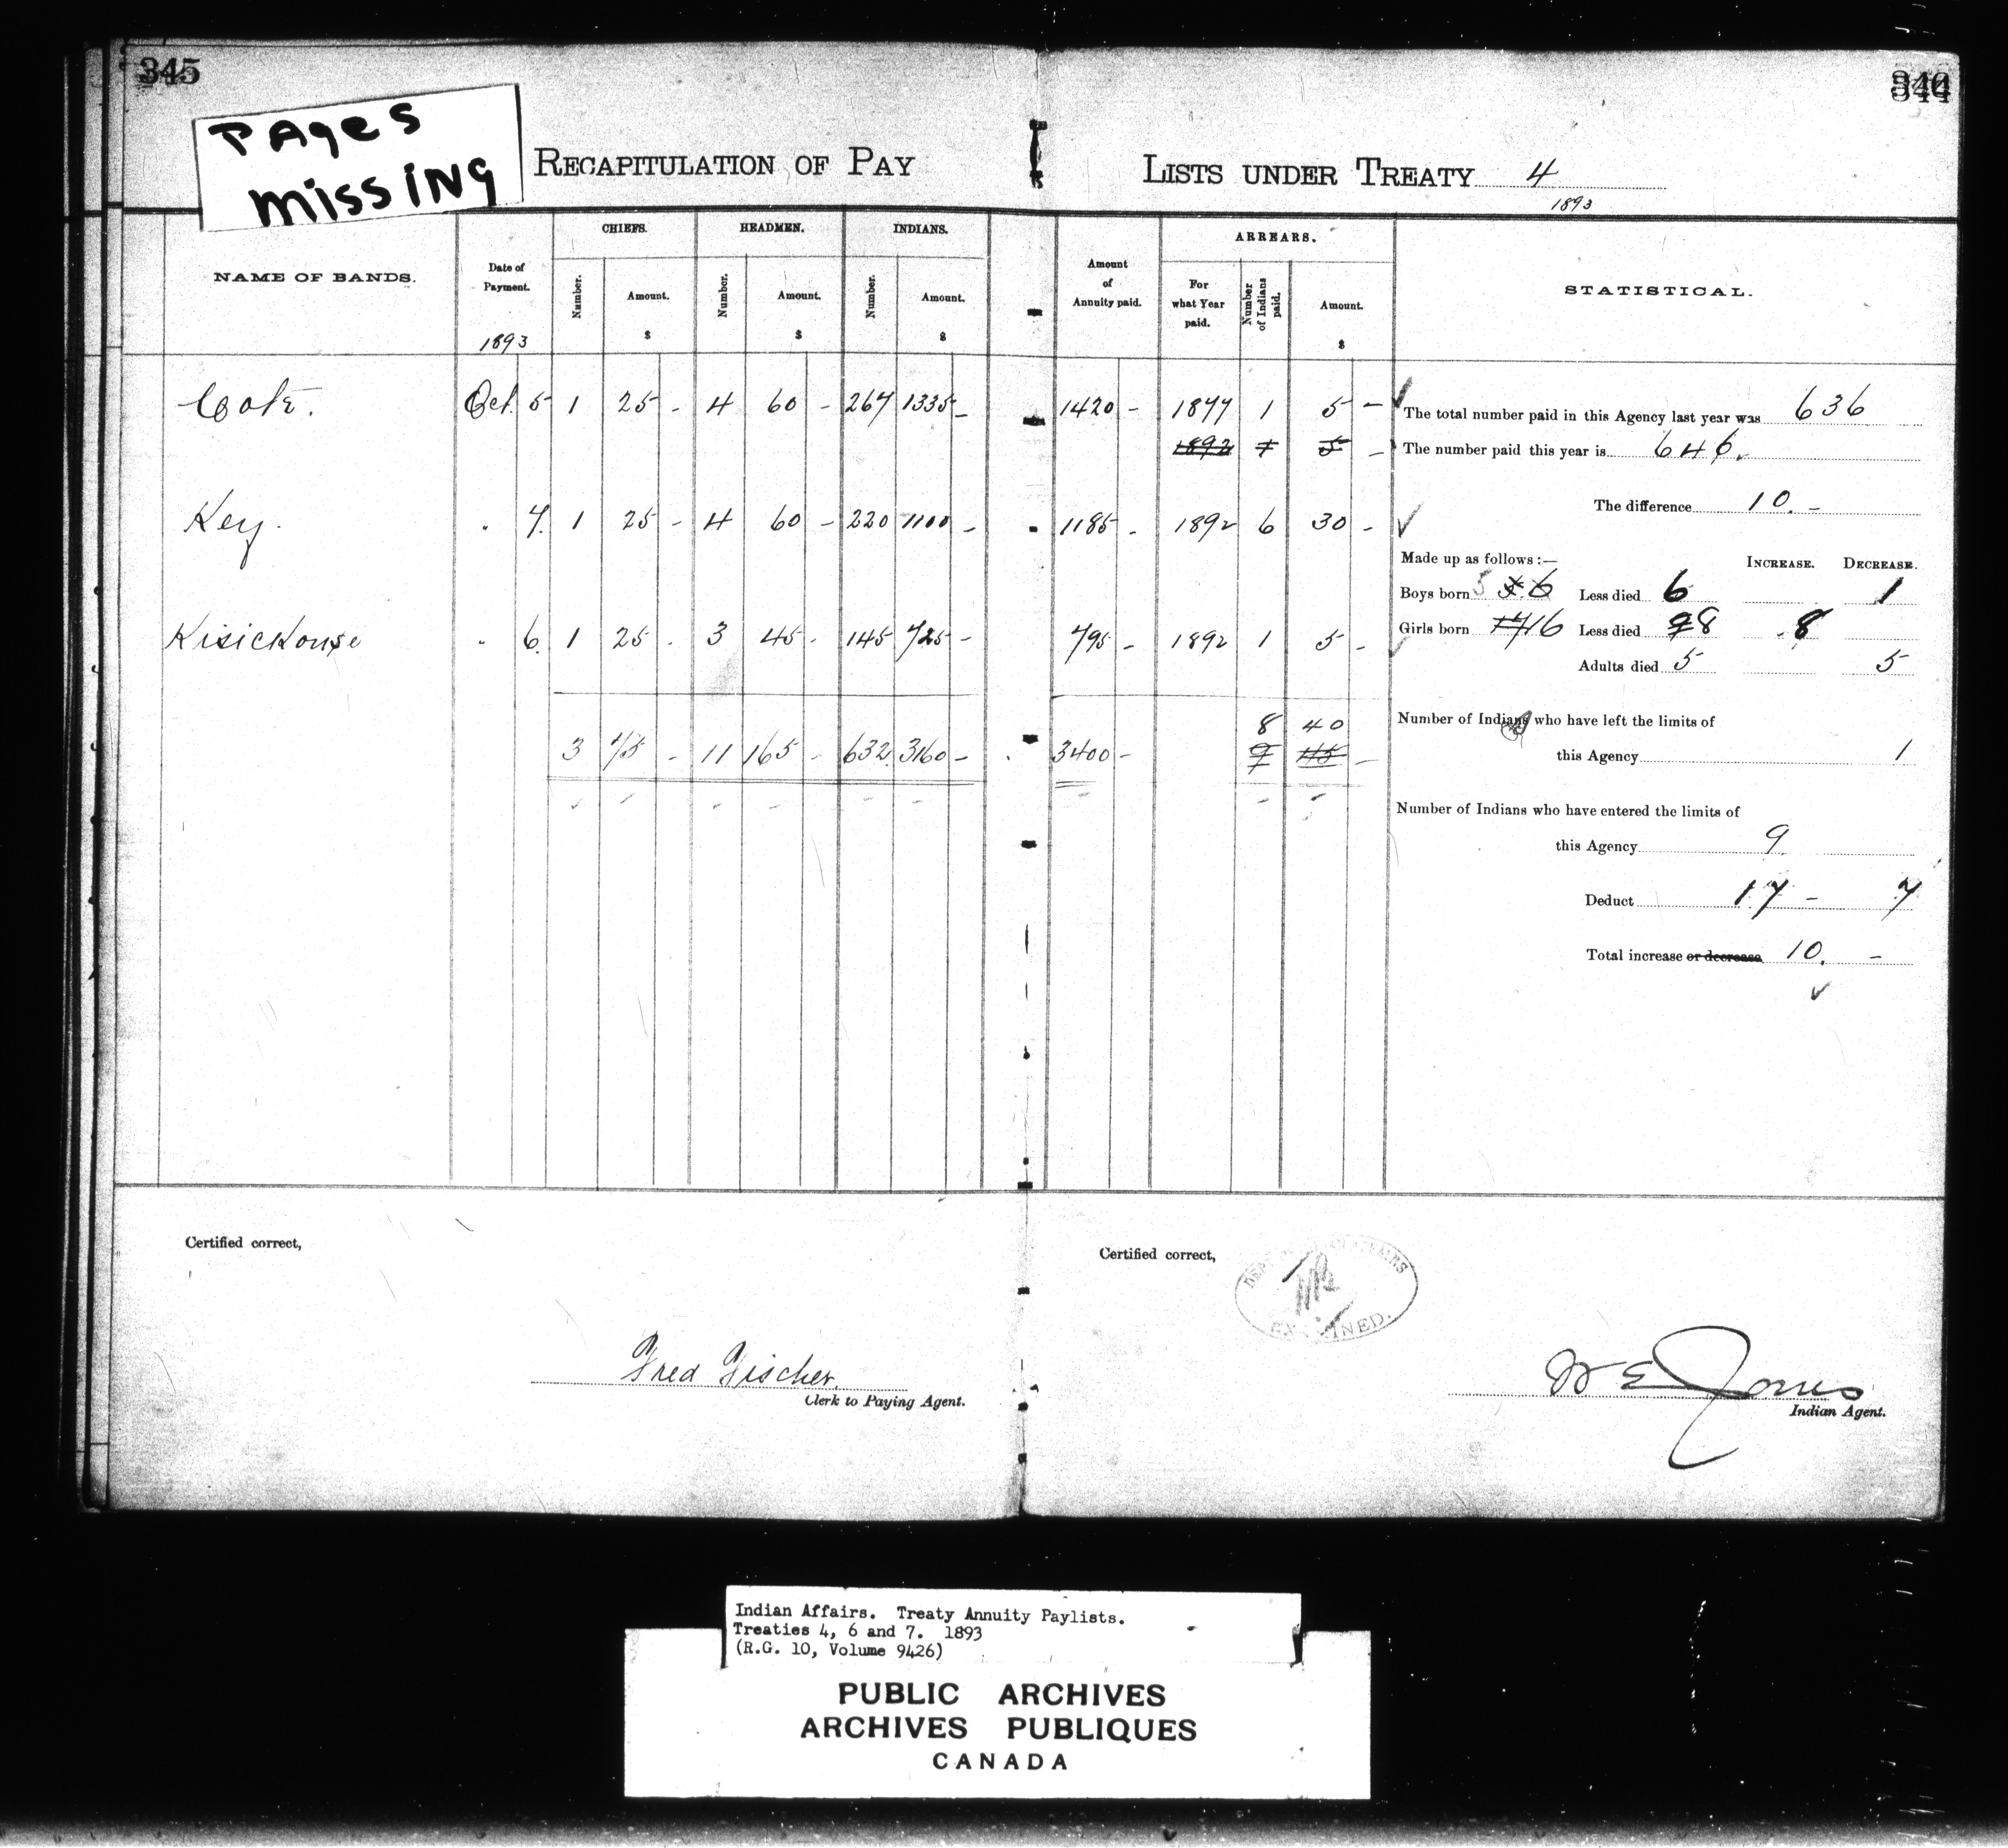 345
346
344
PAges
missing
RECAPITULATION OF PAY LISTS UNDER TREATY 4
1893
NAME OF BANDS. Date of Payment. CHIEFS. HEADMEN. INDIANS. Amount of Annuity paid. ARREARS. STATISTICAL.
1893 Number. Amount. $ Number. Amount. $ Number. Amount. $ For what Year paid. Number of Indians paid. Amount. $
Coté. Oct. 5 1 25 - 4 60 - 267 1335 - 1420 - 1877 1 5 -
1892 1 5 -
Key. " 7. 1 25 - 4 60 - 220 1100 - 1185 - 1892 6 30 -
Kisickouse " 6. 1 25 - 3 45 - 145 725 - 795 - 1892 1 5 -
8 40
3 75 - 11 165 - 632 3160 - 3400 - 9 45 -
The total number paid in this Agency last year was 636
The number paid this year is 646.
The difference 10. -
Made up as follows:— INCREASE. DECREASE.
Boys born 5 6 Less died 6 1
Girls born 16 Less died 8 8
Adults died 5 5
Number of Indians who have left the limits of
this Agency 1
Number of Indians who have entered the limits of
this Agency 9
Deduct 17 - 7
Total increase or decrease 10. -
Certified correct,
Fred Fischer.
Clerk to Paying Agent.
Certified correct,
EXAMINED.
W E Jones
Indian Agent.
Indian Affairs. Treaty Annuity Paylists.
Treaties 4, 6 and 7. 1893
(R.G. 10, Volume 9426)
PUBLIC ARCHIVES
ARCHIVES PUBLIQUES
CANADA